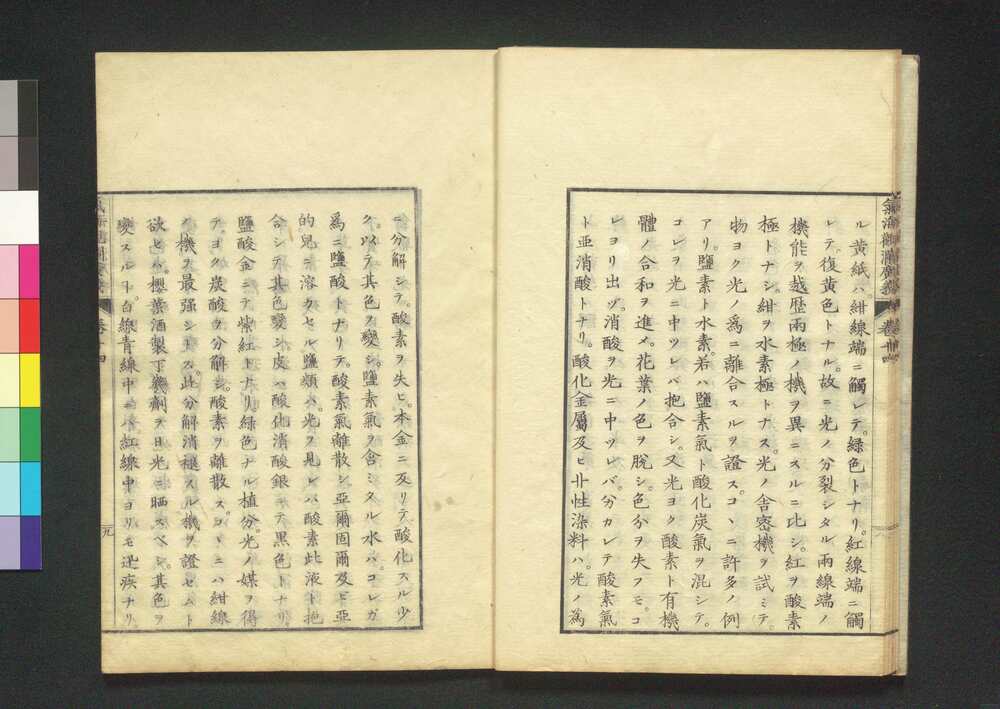 氣海觀瀾廣義 卷十四
ル黄紙ハ紺線端ニ觸レテ。緑色トナリ。紅線端ニ觸
レテ。復黄色トナル。故ニ光ノ分裂シタル兩線端ノ
機能ヲ越歴兩極ノ機ヲ異ニスルニ比シ。紅ヲ酸素
極トナシ。紺ヲ水素極トナス。光ノ舎密機ヲ試ミテ。
物ヨク光ノ爲ニ離合スルヲ證ス。コヽニ許多ノ例
アリ。鹽素ト水素。若ハ鹽素氣ト酸化炭氣ヲ混シテ。
コレヲ光ニ中ツレバ抱合シ。又光ヨク酸素ト有機
體ノ合和ヲ進メ。花葉ノ色ヲ脱シ。色分ヲ失フモ。コ
レヨリ出ヅ。消酸ヲ光ニ中ツレバ。分カレテ酸素氣
ト亜消酸トナリ。酸化金屬及ヒ卝性染料ハ。光ノ爲
ニ分解シテ。酸素ヲ失ヒ。本金ニ反リテ。酸化スル少
ク。以テ其色ヲ變シ。鹽素氣ヲ含ミタル水ハ。コレガ
爲ニ鹽酸トナリテ。酸素氣離散シ。亞爾固爾及ビ亞
的兒ニ溶カセル鹽類ハ。光ヲ見レバ酸素此液ト抱
合シテ。其色變シ。皮ハ酸化消酸銀ニテ黒色トナリ。
鹽酸金ニテ紫紅トナリ。緑色ナル植分。光ノ媒ヲ得
テ。ヨク炭酸ヲ分解シ。酸素ヲ離散ス。コヽニハ紺線
ノ機ヲ最强シトス。此分解消極スル機ヲ證セムト
欲セバ。櫻葉酒製丁幾劑ヲ日光ニ晒スベシ。其色ヲ
變スルト。白線青線中ニ 紅線中ヨリモ迅疾ナリ
卷十四
九